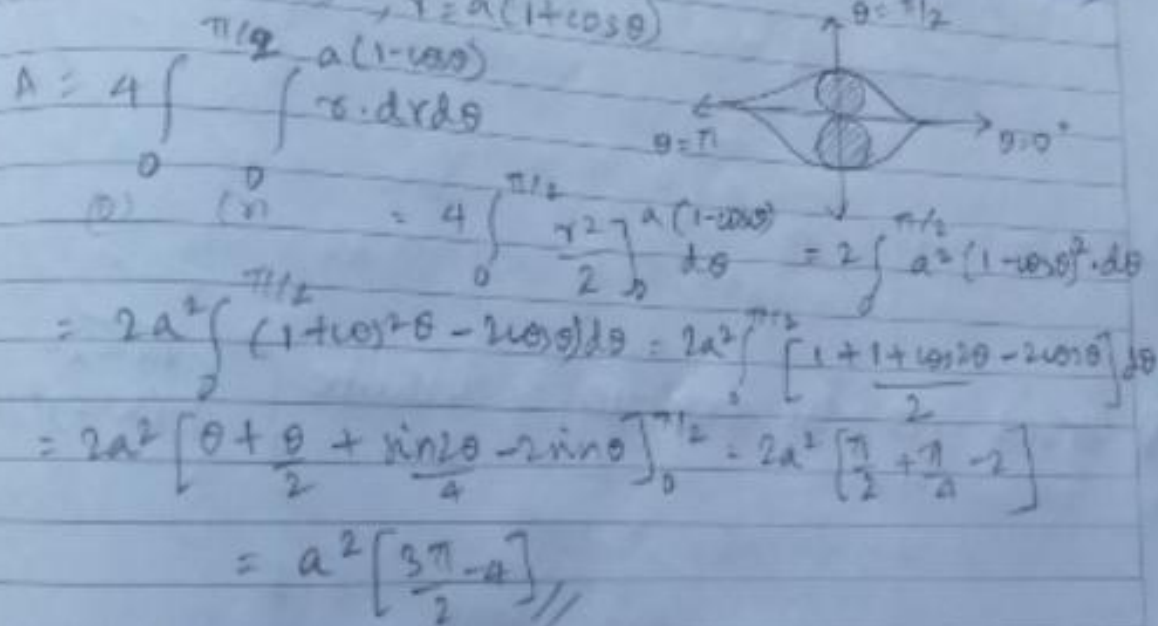 , r = a(1+cosθ)
θ = π/2
A = 4 ∫₀^{π/2} ∫₀^{a(1-cosθ)} r·drdθ
(θ) (r)
θ = π θ = 0°
= 4 ∫₀^{π/2} r²/2]₀^{a(1-cosθ)} dθ = 2 ∫₀^{π/2} a²(1-cosθ)²·dθ
= 2a² ∫₀^{π/2} (1+cos²θ - 2cosθ)dθ = 2a² ∫₀^{π/2} [1 + (1+cos2θ)/2 - 2cosθ] dθ
= 2a² [θ + θ/2 + sin2θ/4 - 2sinθ]₀^{π/2} = 2a² [π/2 + π/4 - 2]
= a² [3π/2 - 4] //